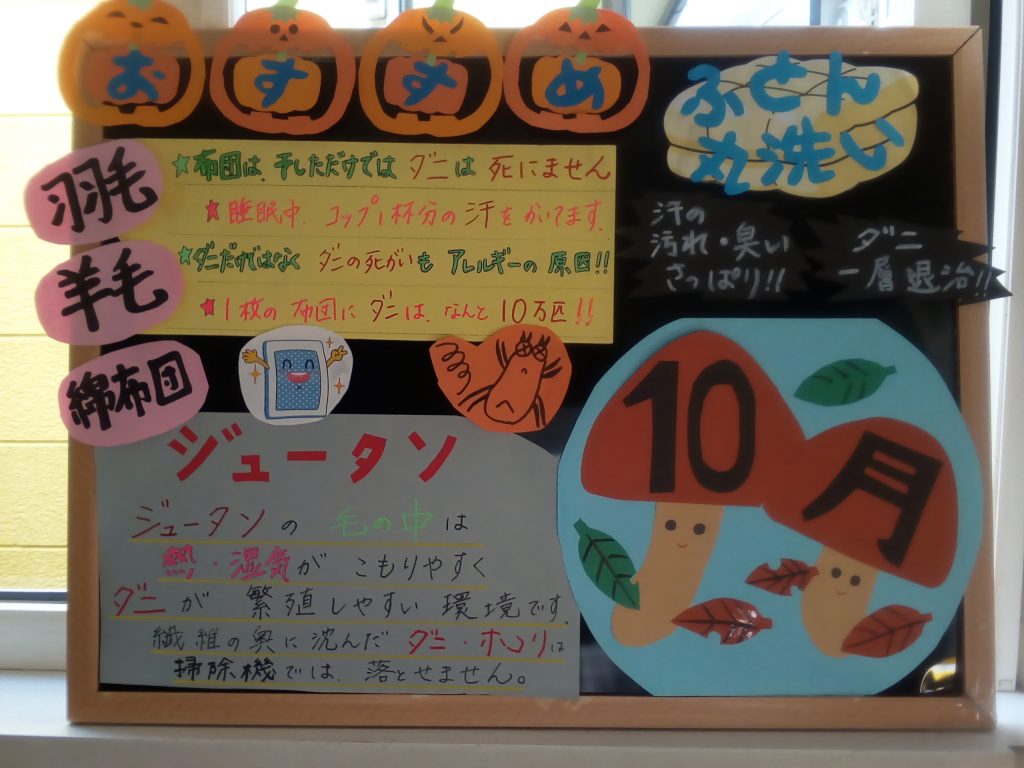 おすすめ
ふとん
丸洗い
羽毛
羊毛
綿布団
★布団は、干しただけでは ダニは 死にません
★睡眠中、コップ1杯分の汗をかいてます。
★ダニだけではなく ダニの死がいも アレルギーの原因!!
★1枚の布団に ダニは、なんと 10万匹!!
汗の
汚れ・臭い
さっぱり!!
ダニ
一層退治!!
ジュータン
ジュータンの 毛の中は
熱・湿気が こもりやすく
ダニが 繁殖しやすい 環境です。
繊維の奥に沈んだ ダニ・ホコリは
掃除機では、落とせません。
10月